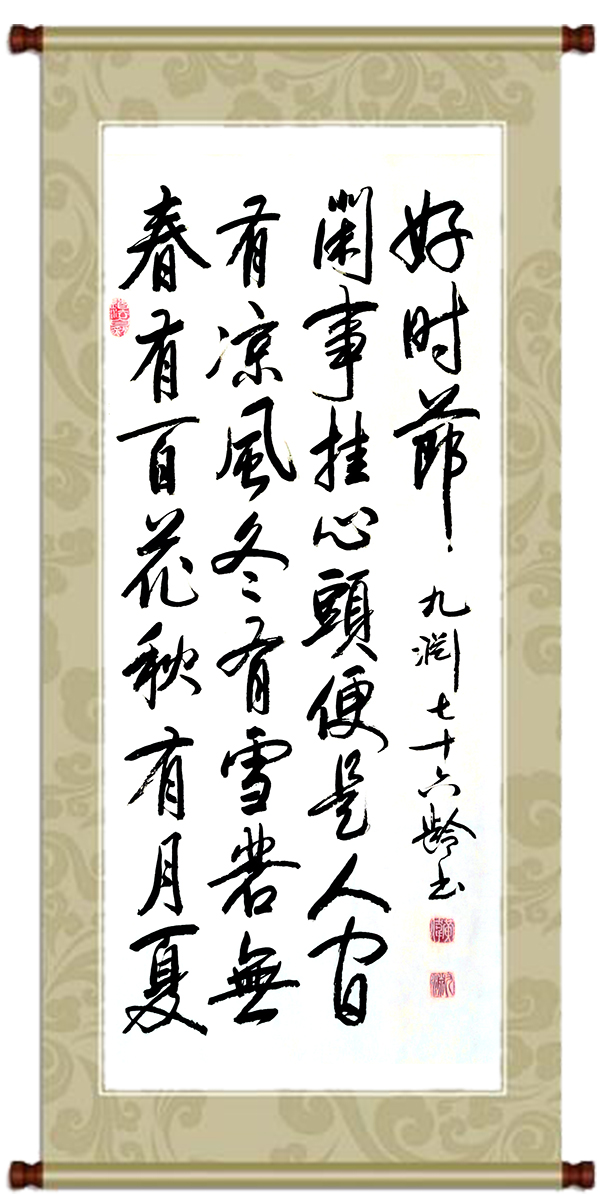 春有百花秋有月夏
有凉風冬有雪若無
閑事挂心頭便是人间
好时節
九渊七十六龄书